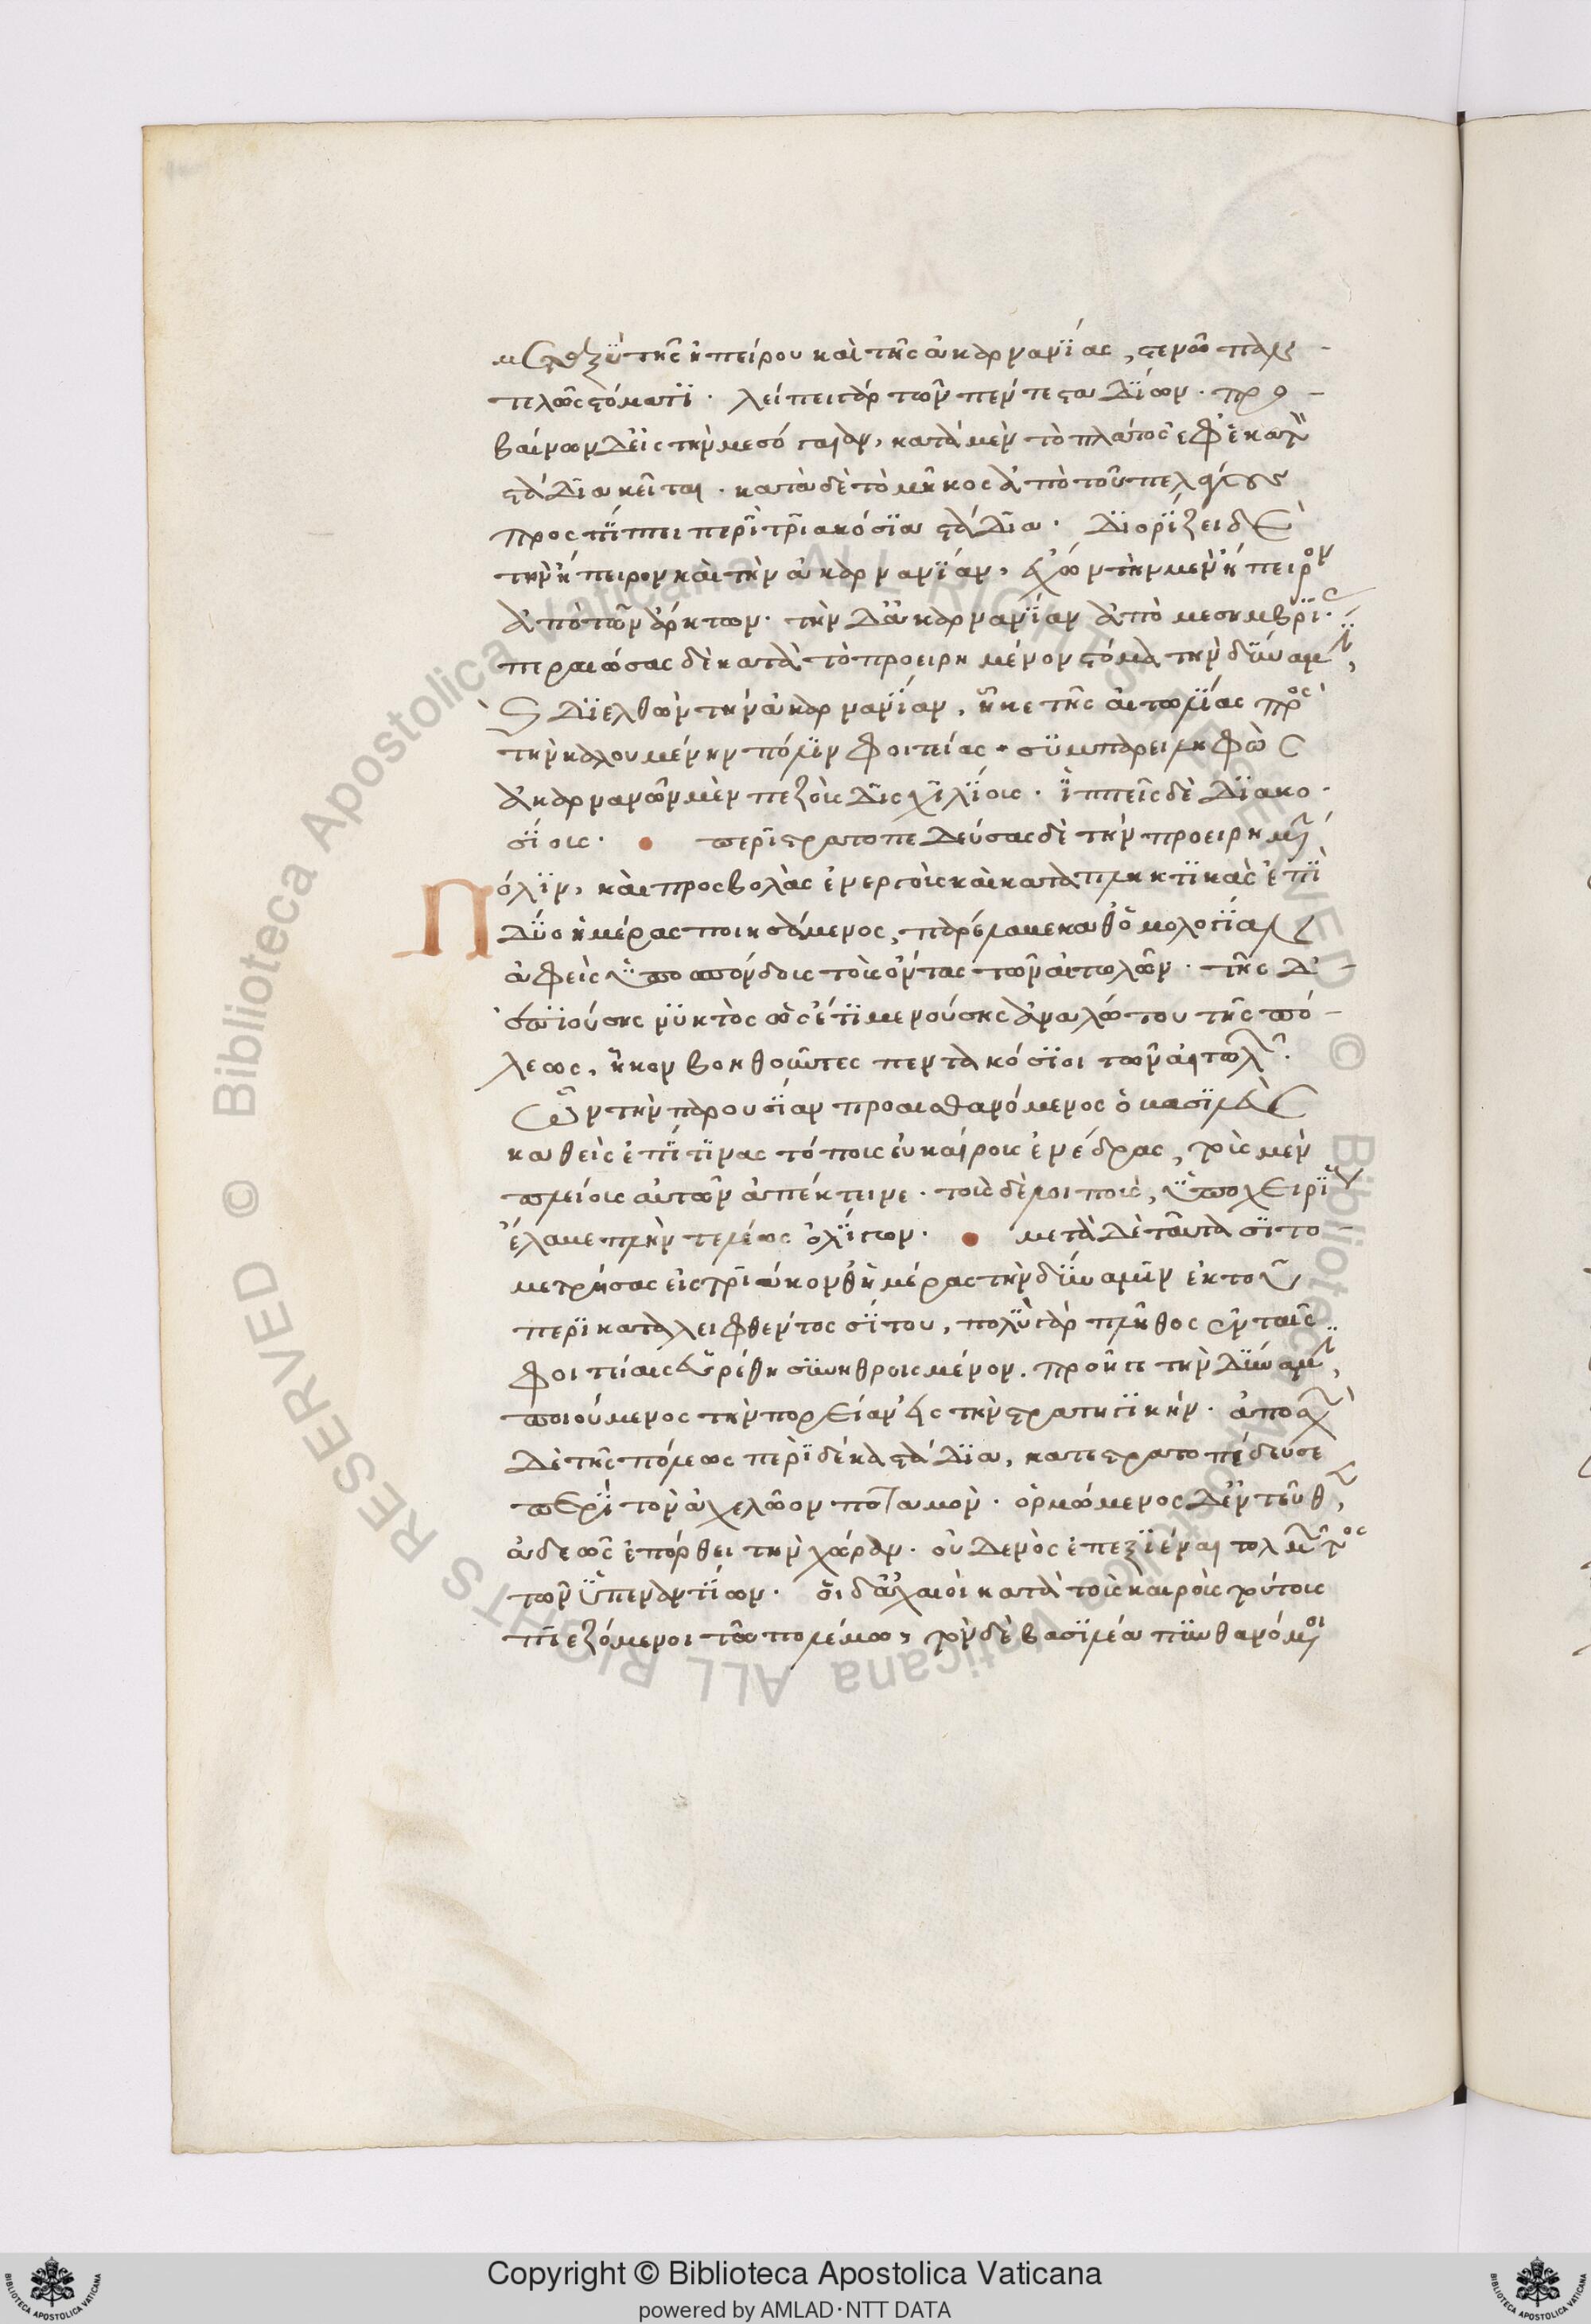 μεταξὺ τῆς ἠπείρου καὶ τῆς ἀκαρνανίας, στενῶ παν
τελῶς στόματι· λείπει γὰρ τῶν πέντε σταδίων· προ
βαίνων δ' εἰς τὴν μεσόγαιαν, κατὰ μὲν τὸ πλάτος ἐφ' ἑκατὸν
στάδια κεῖται· κατὰ δὲ τὸ μῆκος ἀπὸ τοῦ πελάγους
προσπίπτει περὶ τριακόσια στάδια· διορίζει δὲ
τὴν ἤπειρον καὶ τὴν ἀκαρνανίαν, ἔχων τὴν μὲν ἤπειρον
ἀπὸ τῶν ἄρκτων· τὴν δ' ἀκαρνανίαν ἀπὸ μεσημβρίας·
περαιώσας δὲ κατὰ τὸ προειρημένον στόμα τὴν δύναμιν,
καὶ διελθὼν τὴν ἀκαρνανίαν, ἧκε τῆς αἰτωλίας πρὸς
τὴν καλουμένην πόλιν φοιτείας· συμπαρειληφὼς
ἀκαρνανῶν μὲν πεζοὺς δισχιλίους· ἱππεῖς δὲ διακο
σίους· περιστρατοπεδεύσας δὲ τὴν προειρημένην
Πόλιν, καὶ προσβολὰς ἐνεργοὺς καὶ καταπληκτικὰς ἐπὶ
δύο ἡμέρας ποιησάμενος, παρέλαβε καθ' ὁμολογίαν
ἀφεὶς ὑποσπόνδους τοὺς ὄντας τῶν αἰτωλῶν· τῆς δ'
ἐπιούσης νυκτὸς ὡς ἔτι μενούσης ἀναλώτου τῆς πό
λεως, ἧκον βοηθοῦντες πεντακόσιοι τῶν αἰτωλῶν·
Ὧν τὴν παρουσίαν προαισθανόμενος ὁ βασιλεὺς
καθεὶς ἐπί τινας τόπους εὐκαίρους ἐνέδρας, τοὺς μὲν
πλείους αὐτῶν ἀπέκτεινε· τοὺς δὲ λοιποὺς, ὑποχειρίους
ἔλαβε πλὴν τελέως ὀλίγων· μετὰ δὲ ταῦτα σιτο
μετρήσας εἰς τριάκονθ' ἡμέρας τὴν δύναμιν ἐκ τοῦ
περικαταλειφθέντος σίτου, πολὺ γὰρ πλῆθος ἐν ταῖς
φοιτίαις εὑρέθη συνηθροισμένον· προῆγε τὴν δύναμιν,
ποιούμενος τὴν πορείαν εἰς τὴν στρατηγικήν· ἀποσχὼν
δὲ τῆς πόλεως περὶ δέκα στάδια, κατεστρατοπέδευσε
περὶ τὸν ἀχελῶον ποταμὸν· ὁρμώμενος δ' ἐντεῦθεν,
ἀδεῶς ἐπόρθει τὴν χώραν· οὐδενὸς ἐπεξιέναι τολμῶντος
τῶν ὑπεναντίων· οἱ δ' ἀχαιοὶ κατὰ τοὺς καιροὺς τούτους
πιεζόμενοι τῶ πολέμω, τὸν δὲ βασιλέα πυνθανόμενοι